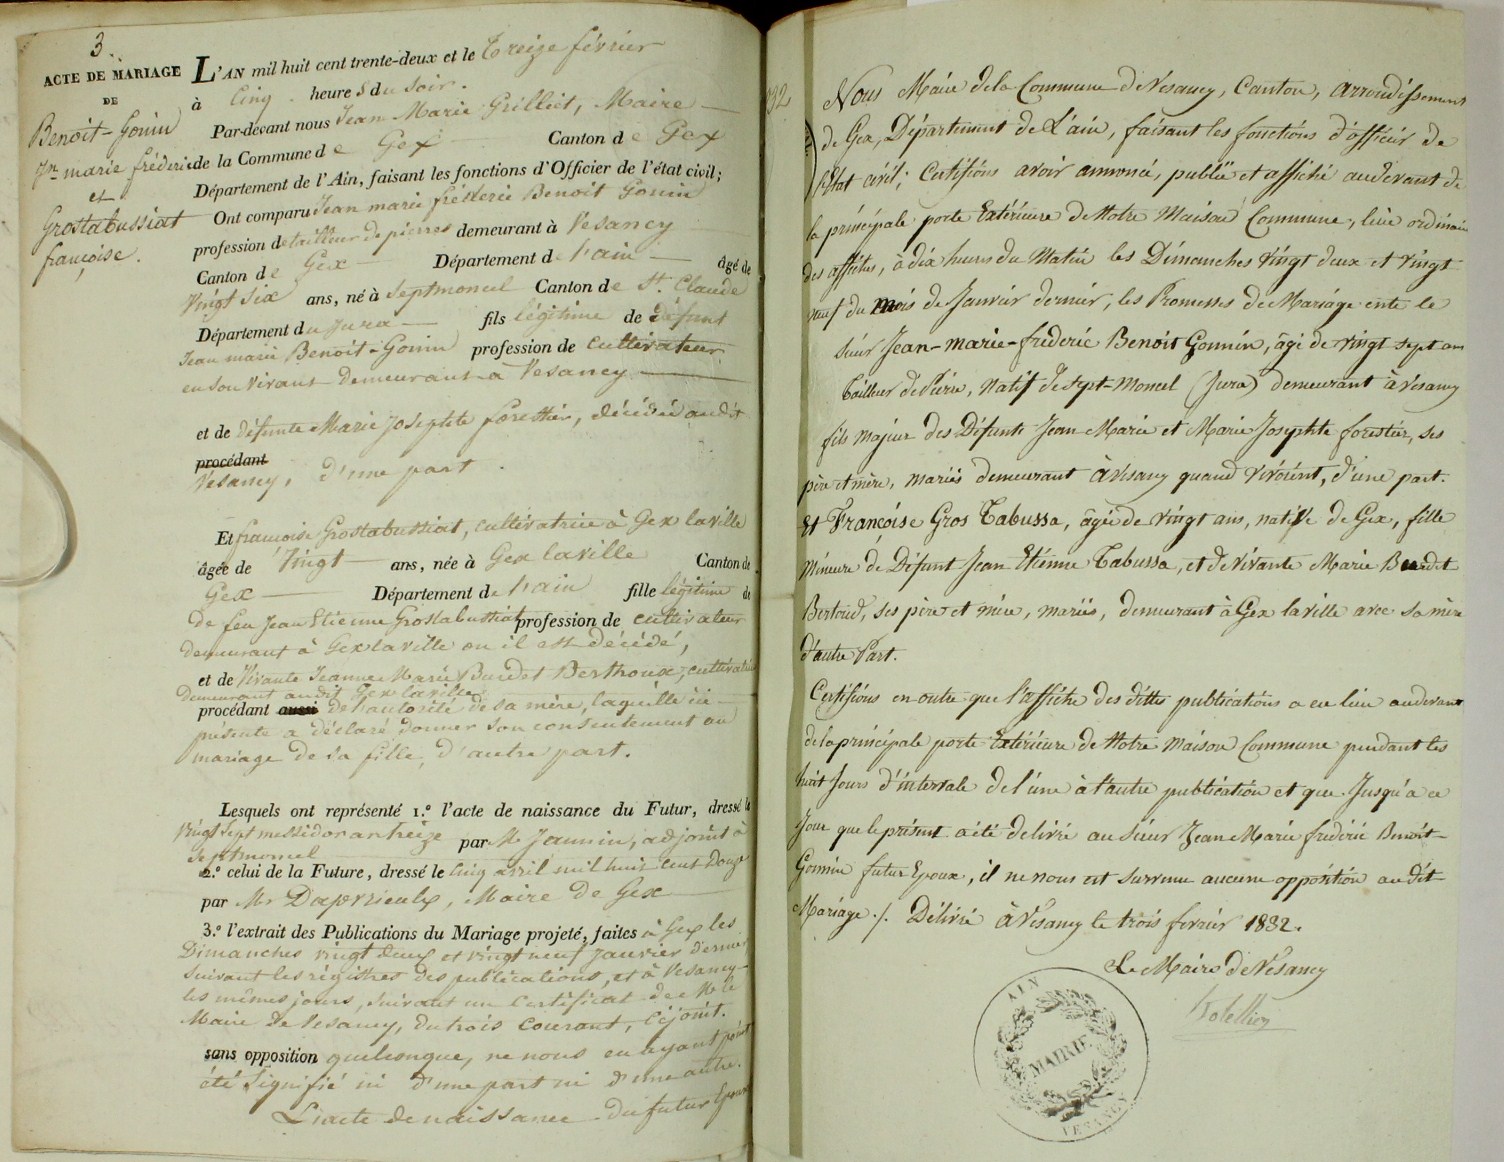 3.
ACTE DE MARIAGE
DE
Benoit-Gonin
Jn marie fréderic
et
Grostabussiat
françoise.
L'AN mil huit cent trente-deux et le Treize février
à Cinq heures du soir.
Par-devant nous Jean Marie Grilliet, Maire
de la Commune de Gex Canton de Gex
Département de l'Ain, faisant les fonctions d'Officier de l'état civil;
Ont comparu Jean marie fréderic Benoit Gonin
profession de tailleur de pierres demeurant à Vesancy
Canton de Gex Département de l'ain âgé de
Vingt Six ans, né à Septmoncel Canton de St. Claude
Département du Jura fils légitime de défunt
Jean marie Benoit-Gonin profession de cultivateur
en son vivant demeurant à Vesancy
et de défunte Marie Josephte forestier, décédée audit
procédant
Vesancy, d'une part.
Et françoise Grostabussiat, cultivatrice à Gex la ville
âgée de Vingt ans, née à Gex la ville Canton de
Gex Département de l'ain fille légitime de
de feu Jean Etienne Grostabussiat profession de cultivateur
demeurant à Gex la ville ou il est décédé,
et de Vivante Jeanne Marie Burdet Berthoux, cultivatrice
demeurant audit Gex la ville
procédant aussi de l'autorité de sa mère, laquelle ici
présente a déclaré donner son consentement au
mariage de sa fille, d'autre part.
Lesquels ont représenté 1.º l'acte de naissance du Futur, dressé le
Vingt sept messidor an treize par Mr Jannin, adjoint à
Septmoncel
2.º celui de la Future, dressé le Cinq avril mil huit cent douze
par Mr Maire de Gex
3.º l'extrait des Publications du Mariage projeté, faites à Gex les
Dimanches vingt deux et vingt neuf janvier dernier
suivant les régistres des publications, et à Vesancy
les mêmes jours, suivant un certificat de Mr le
Maire de Vesancy, du trois courant, ci joint.
sans opposition quelconque, ne nous en ayant point
été signifié ni d'une part ni d'une autre.
L'acte de naissance du futur Epoux
Nous Maire de la Commune de Vesancy, Canton, arrondissement
de Gex, Département de L'ain, faisant les fonctions d'officier de
l'Etat civil; Certifions avoir annoncé, publié et affiché au devant de
la principale porte Extérieure de Notre Maison Commune, lieu ordinaire
des affiches, à dix heures du Matin les Dimanches vingt deux et vingt
neuf du mois de Janvier dernier, les Promesses de Mariage entre le
sieur Jean-Marie-fréderic Benoit Gonnin, âgé de vingt sept ans
Tailleur de Pierre, Natif de Sept-Moncel (Jura) demeurant à Vesancy
fils majeur des Défunts Jean Marie et Marie Josephte forestier, ses
père et mère, mariés demeurant à Vesancy quand vivoient, d'une part.
Et Françoise Gros Tabussa, âgée de vingt ans, native de Gex, fille
Mineure de Défunt Jean Etiénne Tabussa, et de vivante Marie Burdet
Bertoud, ses père et mère, mariés, demeurant à Gex la ville avec sa mère
d'autre Part.
Certifions en outre que l'affiche des dittes publications a eu lieu au devant
de la principale porte Extérieure de Notre Maison Commune pendant les
huit Jours d'intervale de l'une à l'autre publication et que Jusqu'à ce
Jour que le présent a été délivré au sieur Jean Marie fréderic Benoit-
Gonnin futur Epoux, il ne nous est survenu aucune opposition au dit
Mariage ./. Délivré à Vesancy le trois fevrier 1832.
Le Maire de Vesancy
AIN
MAIRIE
VESANCY